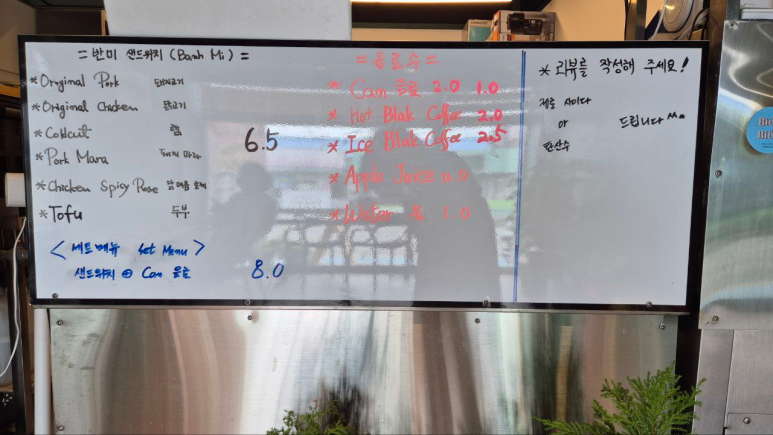 = 반미 샌드위치 (Banh Mi) =
* Original Pork 돼지고기
* Original Chicken 닭고기
* Cobcuit 햄
* Pork Mara 돼지 마라
* Chicken Spicy
* Tofu 두부
6.5
< 세트메뉴 Set Menu >
샌드위치 ⊕ Can 음료 8.0
= 음료수 =
* Can 음료 2.0 1.0
* Hot Blak Coffee 2.0
* Ice Blak Coffee 2.5
* Apple Juice
* Water 물 1.0
* 리뷰를 작성해 주세요!
제로 사이다
or 드립니다
탄산수